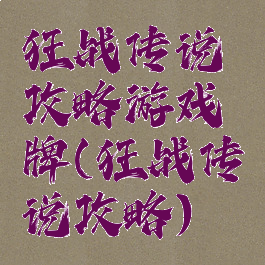 狂战传说
攻略游戏
牌(狂战传
说攻略)